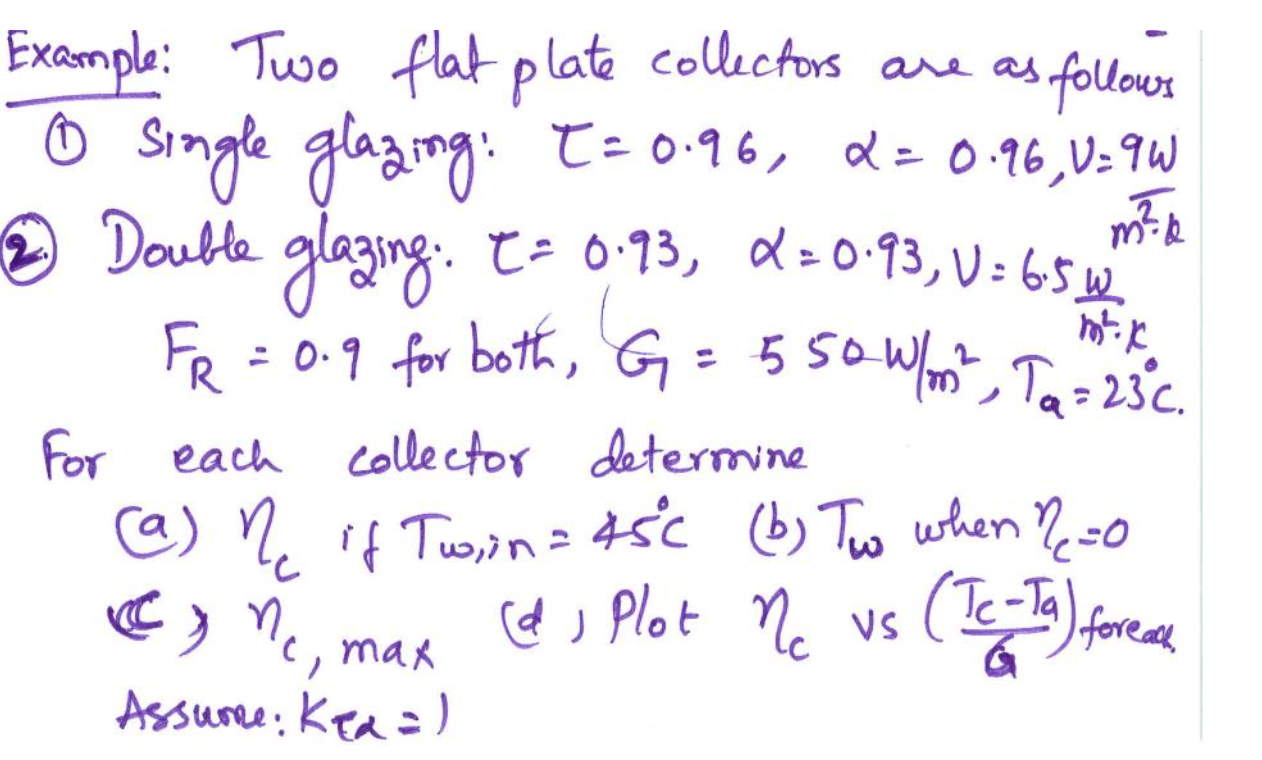 Example: Two flat plate collectors are as follows
① Single glazing: τ = 0.96, α = 0.96, U = 9 W/m²·k
② Double glazing: τ = 0.93, α = 0.93, U = 6.5 W/m²·K
F_R = 0.9 for both, G = 550 W/m², Ta = 23°C.
For each collector determine
(a) η_c if Tw,in = 45°C (b) Tw when η_c = 0
(c) η_c, max (d) Plot η_c vs (Tc-Ta/G) for each
Assume: Kτα = 1